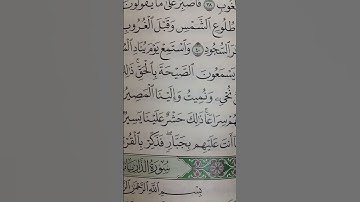 لُغُوبٍ ٣٨ فَٱصْبِرْ عَلَىٰ مَا يَقُولُونَ
طُلُوعِ ٱلشَّمْسِ وَقَبْلَ ٱلْغُرُوبِ
ٱلسُّجُودِ ٤٠ وَٱسْتَمِعْ يَوْمَ يُنَادِ ٱلْمُ
يَسْمَعُونَ ٱلصَّيْحَةَ بِٱلْحَقِّ ذَٰلِكَ
نُحْيِۦ وَنُمِيتُ وَإِلَيْنَا ٱلْمَصِيرُ
سِرَاعًا ذَٰلِكَ حَشْرٌ عَلَيْنَا يَسِيرٌ
أَنتَ عَلَيْهِم بِجَبَّارٍ فَذَكِّرْ بِٱلْقُرْ
سُورَةُ ٱلذَّارِيَاتِ
بِسْمِ ٱللَّهِ ٱلرَّحْمَٰنِ ٱلرَّ